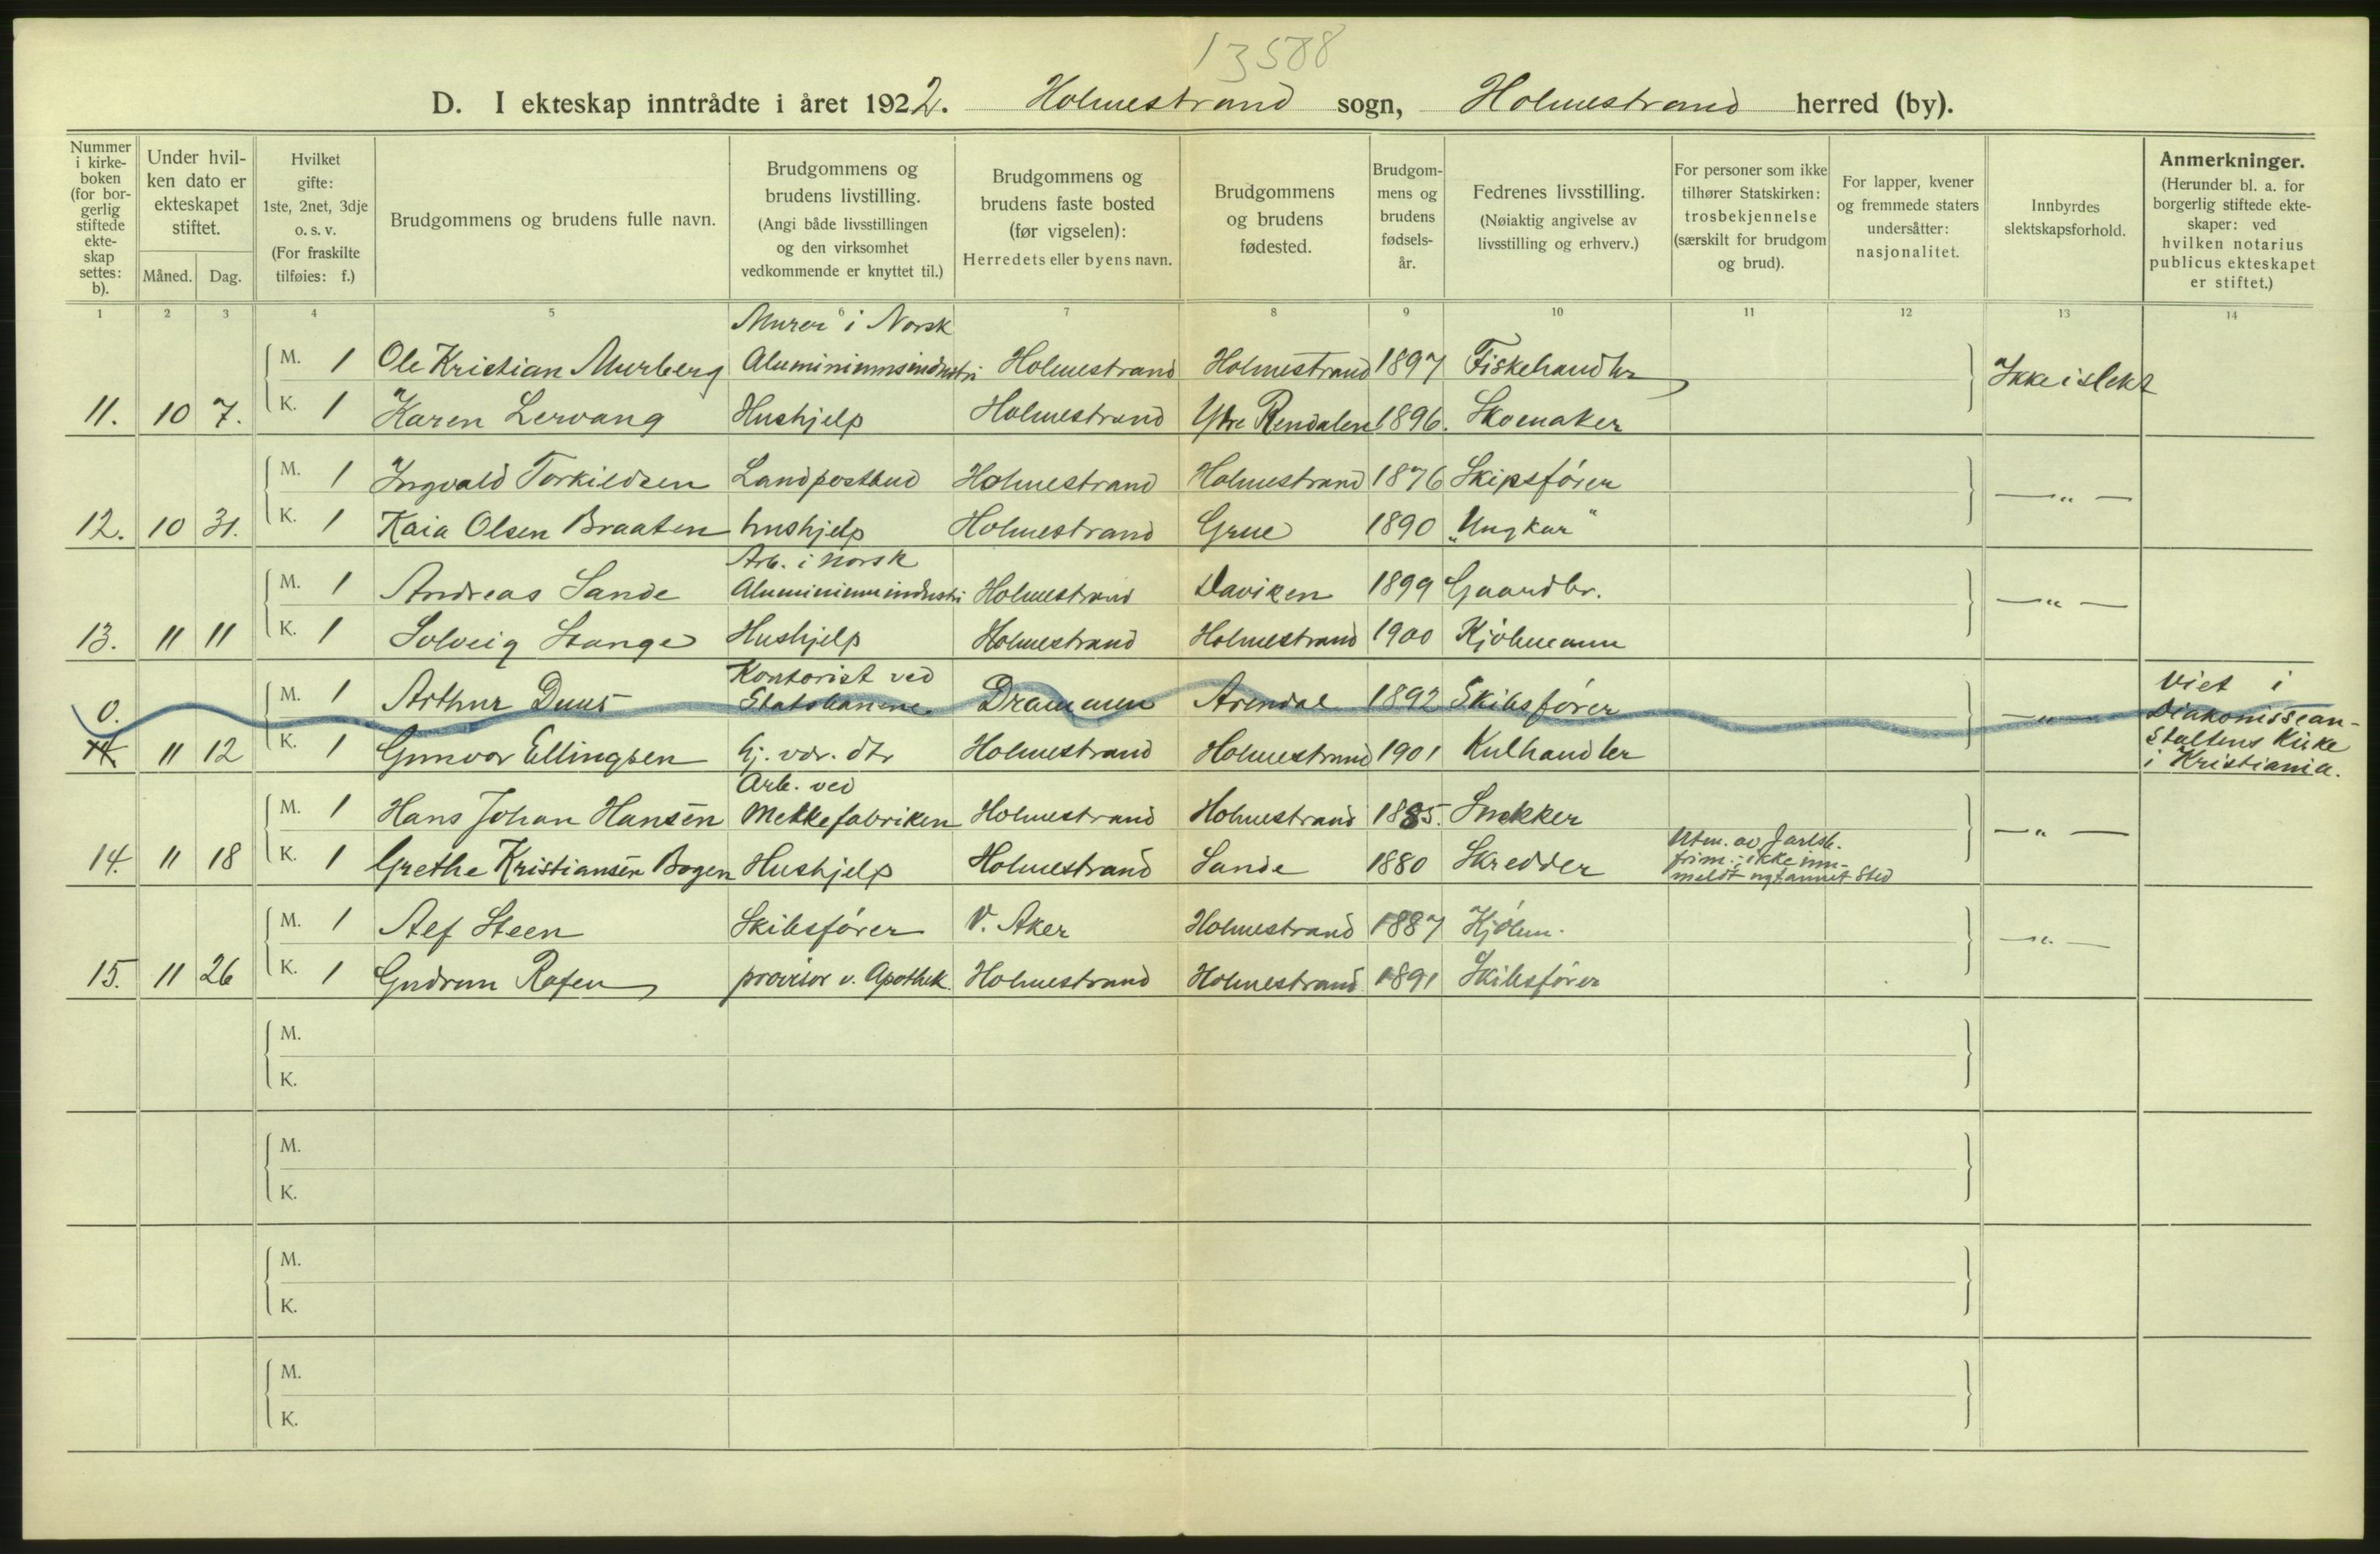 13588
D. I ekteskap inntrådte i året 1922. Holmestrand sogn, Holmestrand herred (by).
Nummer i kirke- boken (for bor- gerlig stiftede ekte- skap settes: b).
Under hvil- ken dato er ekteskapet stiftet.
Måned. Dag.
Hvilket gifte: 1ste, 2net, 3dje o. s. v. (For fraskilte tilføies: f.)
Brudgommens og brudens fulle navn.
Brudgommens og brudens livstilling. (Angi både livsstillingen og den virksomhet vedkommende er knyttet til.)
Brudgommens og brudens faste bosted (før vigselen): Herredets eller byens navn.
Brudgommens og brudens fødested.
Brudgom- mens og brudens fødsels- år.
Fedrenes livsstilling. (Nøiaktig angivelse av livsstilling og erhverv.)
For personer som ikke tilhører Statskirken: trosbekjennelse (særskilt for brudgom og brud).
For lapper, kvener og fremmede staters undersåtter: nasjonalitet.
Innbyrdes slektskapsforhold.
Anmerkninger. (Herunder bl. a. for borgerlig stiftede ekte- skaper: ved hvilken notarius publicus ekteskapet er stiftet.)
1 2 3 4 5 6 7 8 9 10 11 12 13 14
Murer i Norsk
M. 1 Ole Kristian Murberg Aluminiumsindustri Holmestrand Holmestrand 1897 Fiskehandler Ikke i slekt
11. 10 7. K. 1 Karen Lervang Hushjelp Holmestrand Ytre Rendalen 1896. Skomaker
M. 1 Ingvald Torkildsen Landpostbud Holmestrand Holmestrand 1876 Skipsfører — " —
12. 10 31. K. 1 Kaia Olsen Braaten hushjelp Holmestrand Grue 1890 "Ungkar"
Arb. i norsk
M. 1 Andreas Sande Aluminiumindustri Holmestrand Daviken 1899 Gaardbr. — " —
13. 11 11 K. 1 Solveig Stange Hushjelp Holmestrand Holmestrand 1900 Kjøbmann
Kontorist ved
0. M. 1 Arthur Duus Statsbanene Drammen Arendal 1892 Skibsfører — " —
14. 11 12 K. 1 Gunvor Ellingsen Hj. vær. dtr Holmestrand Holmestrand 1901 Kulhandler
Viet i
Diakonissean-
staltens Kirke
i Kristiania.
Arb. ved
M. 1 Hans Johan Hansen Mekkefabriken Holmestrand Holmestrand 1885. Snekker — " —
14. 11 18 K. 1 Grethe Kristiansen Bogen Hushjelp Holmestrand Sande 1880 Skredder
Utm. av Jarlsb.
frim.; ikke inn-
meldt nyt annet sted
M. 1 Alf Steen Skibsfører V. Aker Holmestrand 1887 Kjøbm. — " —
15. 11 26 K. 1 Gudrun Rafen provisor v. Apothek. Holmestrand Holmestrand 1891 Skibsfører
M.
K.
M.
K.
M.
K.
M.
K.